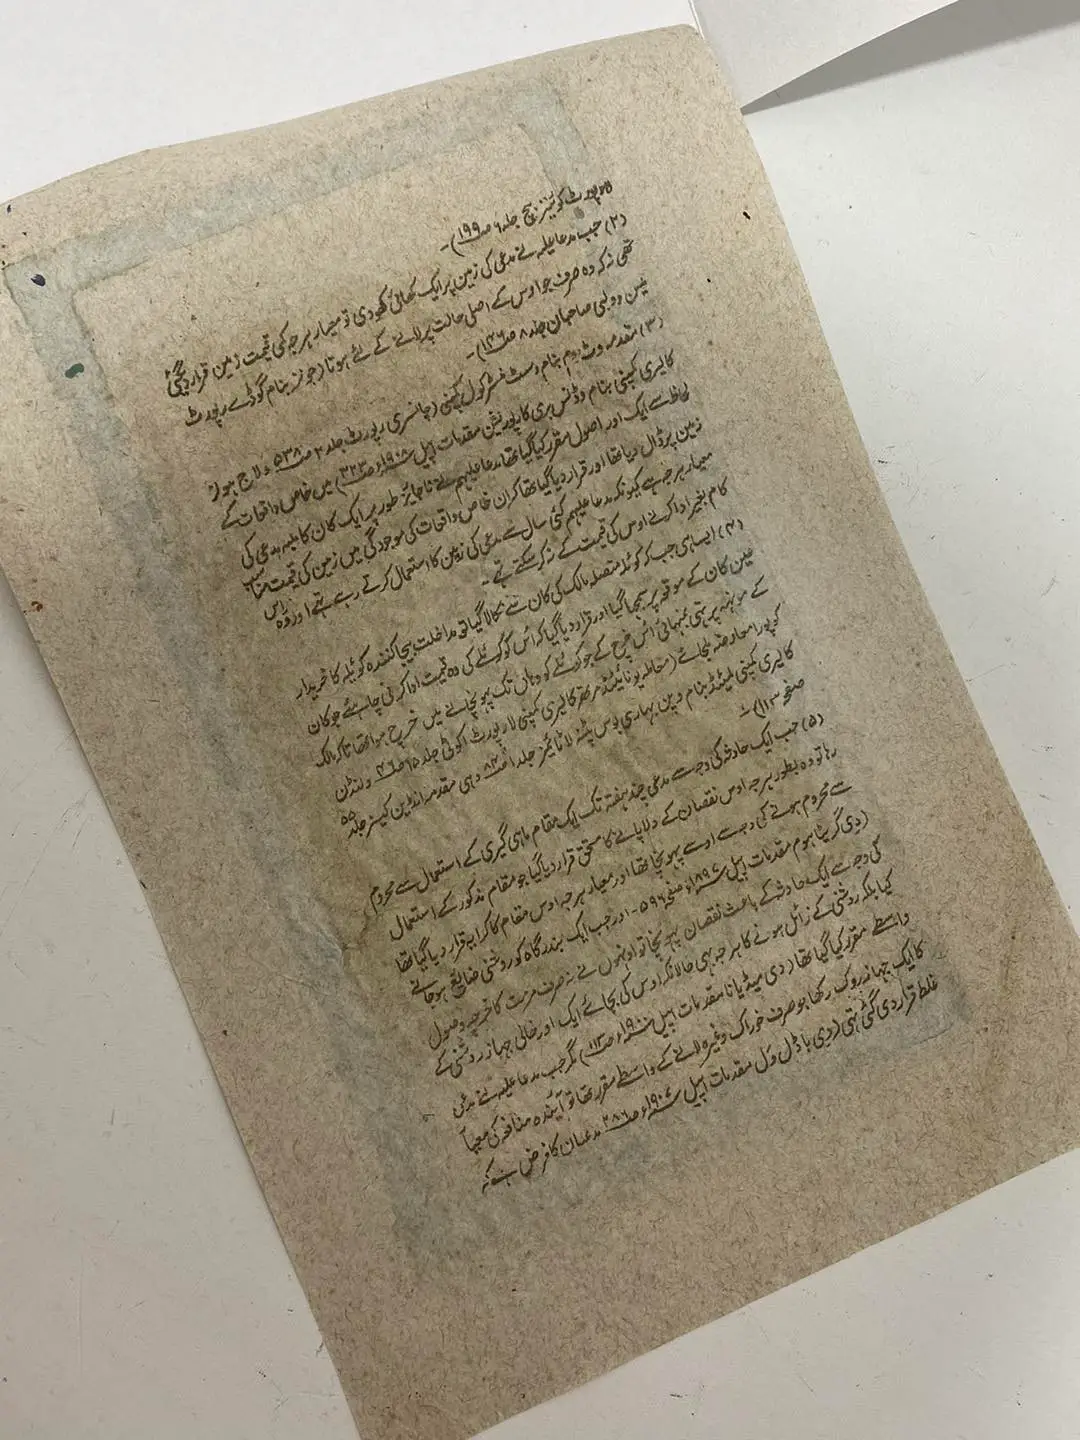 لا رپورٹ کوئینز بنچ جلد ۶ صہ ۱۹۹)۔
(۲) جب مدعا علیہ نے مدعی کی زمین پر ایک کھائی کھود دی تو معیار ہرجہ کی قیمت زمین قرار دیگئی
تھی نہ کہ وہ صرف جو اوس کے اصلی حالت پر لانے کے لئے ہوتا (جونز بنام گوڈے رپورٹ
میسن و ولبی صاحبان جلد ۸ صہ ۱۴۶)۔
(۳) مقدمہ وٹ وہم بنام وسٹ منسٹر کول کمپنی (چانسری رپورٹ جلد ۲ صہ ۵۳۸ و لاج ہولز
کالیری کمپنی بنام وڈنس بری کارپوریشن مقدمات اپیل سنہ ۱۹۰۸ء صہ ۳۲۳) میں خاص واقعات کے
لحاظ سے ایک اور اصول مقرر کیا گیا تھا مدعا علیہم نے ناجائز طور پر ایک کان کا ملبہ مدعی کی
زمین پر ڈال دیا تھا اور قرار دیا گیا تھا کہ ان خاص واقعات کی موجودگی میں زمین کی قیمت مناسب
معیار ہرجہ ہے کیونکہ مدعا علیہم کئی سال سے مدعی کی زمین کا استعمال کرتے رہے تھے اور وہ اس
کام بغیر ادا کرنے اوس کی قیمت کے نہ کر سکتے تھے۔
(۴) ایسا ہی جب کہ کوئلہ متصلہ مالک کی کان سے نکالا گیا تو مداخلت بیجا کنندہ کوئلہ کا خریدار
عین کان کے موقعہ پر سمجھا گیا اور قرار دیا گیا کہ اُس کو کوئلے کی وہ قیمت ادا کرنی چاہئے جو کان
کے موہنہ پر تھی بمنہائی اُس خرچ کے جو کوئلے کو وہاں تک پہونچانے میں خرچ ہوا تھا تاکہ مالک
کو پورا معاوضہ ملجائے (معاملہ یونائیٹڈ مرتھر کالیری کمپنی لا رپورٹ اکوئٹی جلد ۱۵ صہ ۴۶ و لنڈن
کالیری کمپنی لمیٹڈ بنام وپن بہاری بوس پٹنہ لا ٹائمز جلد ۱ صہ ۸۴ وہی مقدمہ انڈین کیسز جلد ۵۵
صفحہ ۱۱۳)۔
(۵) جب ایک حادثہ کی وجہ سے مدعی چند ہفتہ تک ایک مقام ماہی گیری کے استعمال سے محروم
رہا تو وہ بطور ہرجہ اوس نقصان کے دلا پانے کا مستحق قرار دیا گیا جو مقام مذکور کے استعمال
سے محروم ہونے کی وجہ سے اوسے پہونچا تھا اور معیار ہرجہ اوس مقام کا کرایہ قرار دیا گیا تھا
(دی گریٹا ہوم مقدمات اپیل سنہ ۱۸۹۷ء صفحہ ۵۹۶۔ اور جب ایک بندرگاہ کو روشنی ضائع ہو جانے
کی وجہ سے ایک حادثہ کے باعث نقصان پہونچا تو اونہوں نے نہ صرف مرمت کا خرچہ وصول
کیا بلکہ روشنی کے زائل ہونے کا ہرجہ بھی حالانکہ اوس کی بجائے ایک اور خالی جہاز روشنی کے
واسطے مقرر کیا گیا تھا (دی میڈیانا مقدمات اپیل سنہ ۱۹۰۰ء صہ ۱۱۳) مگر جب مدعا علیہ نے مدعی
کا ایک جہاز روک رکھا جو صرف خوراک وغیرہ لانے کے واسطے مقرر تھا تو آئندہ منافعہ کی معیار
غلط قرار دی گئی تھی (دی باڈل ول مقدمات اپیل سنہ ۱۹۰۷ء صہ ۳۸۶ مدعیان کا فرض ہے کہ